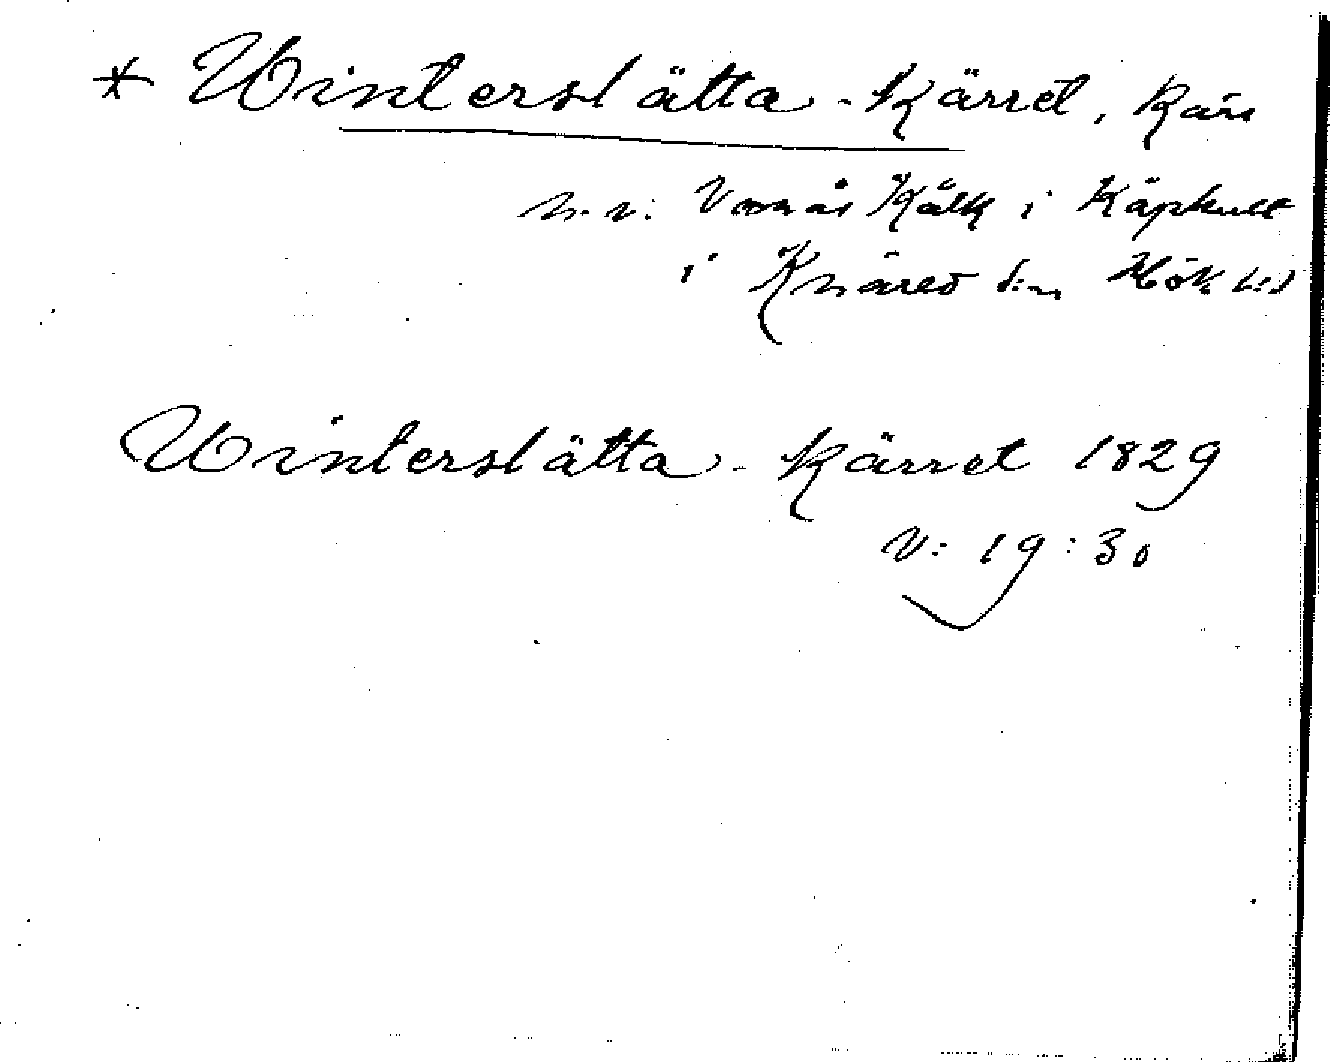 * Winterslätta-Kärret, Kärr
n.v. Vrån Kålk i Käphult
i Knäred s:n Hök hd
Winterslätta-Kärret 1829
V: 19:30